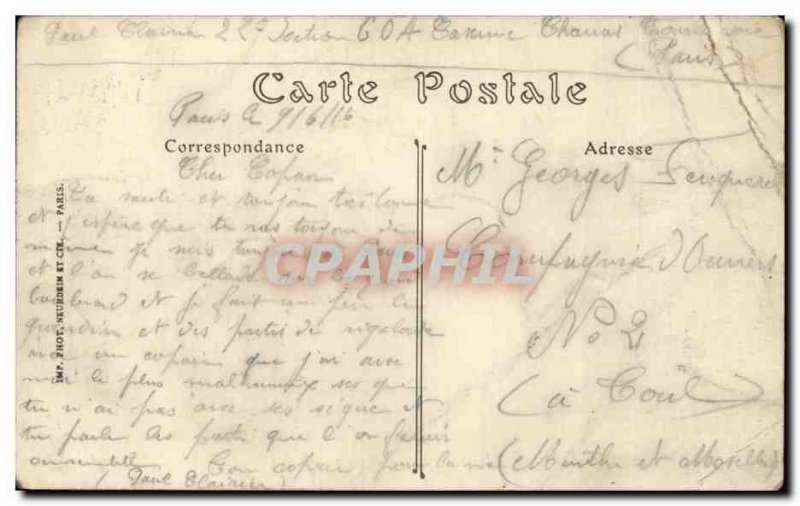 Paul Clairin 22e Section COA Caserne Charras Courbevoie
(Paris)
Carte Postale
Paris le 9/6/16
Correspondance
Adresse
Cher Copain
La santé et toujour tres bonne
et j'espère que tu vas toujour de
meme je suis toujour
et l'on se ballade sur les
boulevard et je fait un peu le
et des partis de rigolade
avec un copain que j'ai avec
moi le plus malheureux ses que
tu n'ai pas avec ses sigue et
tu parle les parti que l'on ferais
ensemble Ton copain pour la vie
(Paul Clairin)
Mr Georges
Compagnie d'Ouvriers
No 2
(à Toul)
(Meurthe et Moselle)
IMP. PHOT. NEURDEIN ET CIE. — PARIS.
CPAPHIL